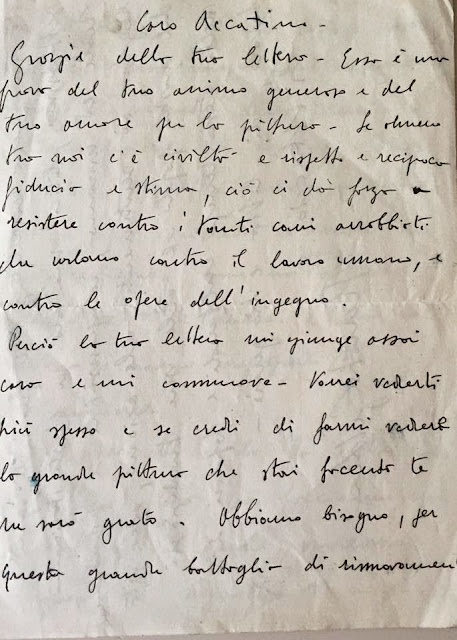 Caro Accatino -
Grazie della tua lettera - Essa è una
prova del tuo animo generoso e del
tuo amore per la pittura - Se almeno
tra noi c'è civiltà e rispetto e reciproca
fiducia e stima, ciò ci dà forza a
resistere contro i tanti cani arrabbiati
che urlano contro il lavoro umano, e
contro le opere dell'ingegno.
Perciò la tua lettera mi giunge assai
cara e mi commuove - Vorrei vederti
più spesso e se credi di farmi vedere
la grande pittura che stai facendo te
ne sarò grato. Abbiamo bisogno, per
questa grande battaglia di rinnovamen